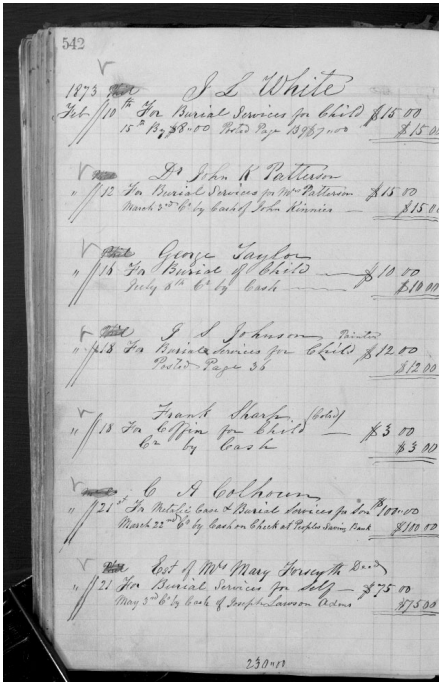 542
1873 J L White
Feb 10th For Burial Services for Child $15.00
15th By $8.00 Posted Page 139 $7.00 $15.00
Dr John K Patterson
" 12 For Burial Services for Mrs Patterson $15.00
March 3rd Cr by Cash of John Kinnier — $15.00
George Taylor
" 16 For Burial of Child — $10.00
July 8th Cr by Cash — $10.00
T S Johnson Painter
" 18 For Burial Services for Child $12.00
Posted Page 36 $12.00
Frank Sharp (Cold)
" 18 For Coffin for Child — $3.00
Cr by Cash $3.00
C A Colhoun
" 21st For Metalic Case & Burial Services for Son $100.00
March 22nd Cr by Cash on Check at Peoples Saving Bank $100.00
Est of Mrs Mary Forsyth Decd
" 21 For Burial Services for Self — $75.00
May 3rd Cr by Cash of Joseph Lawson Admr $75.00
230.00